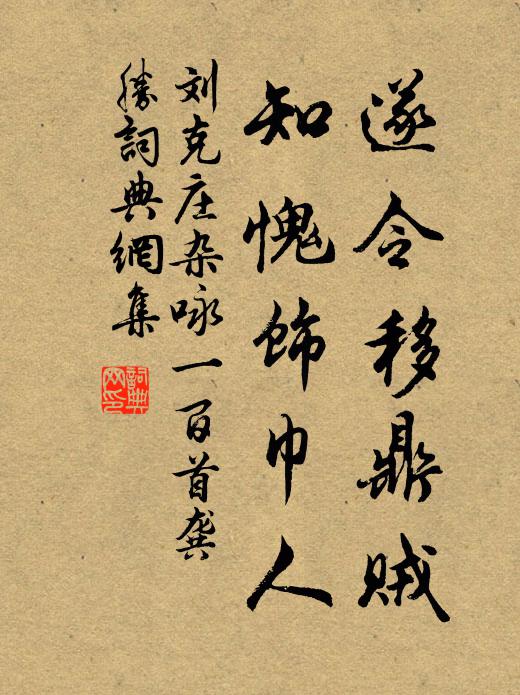 遂令移鼎賊
知愧飾巾人
刘克庄杂咏一百首龚
勝詞典網集
詞典网印